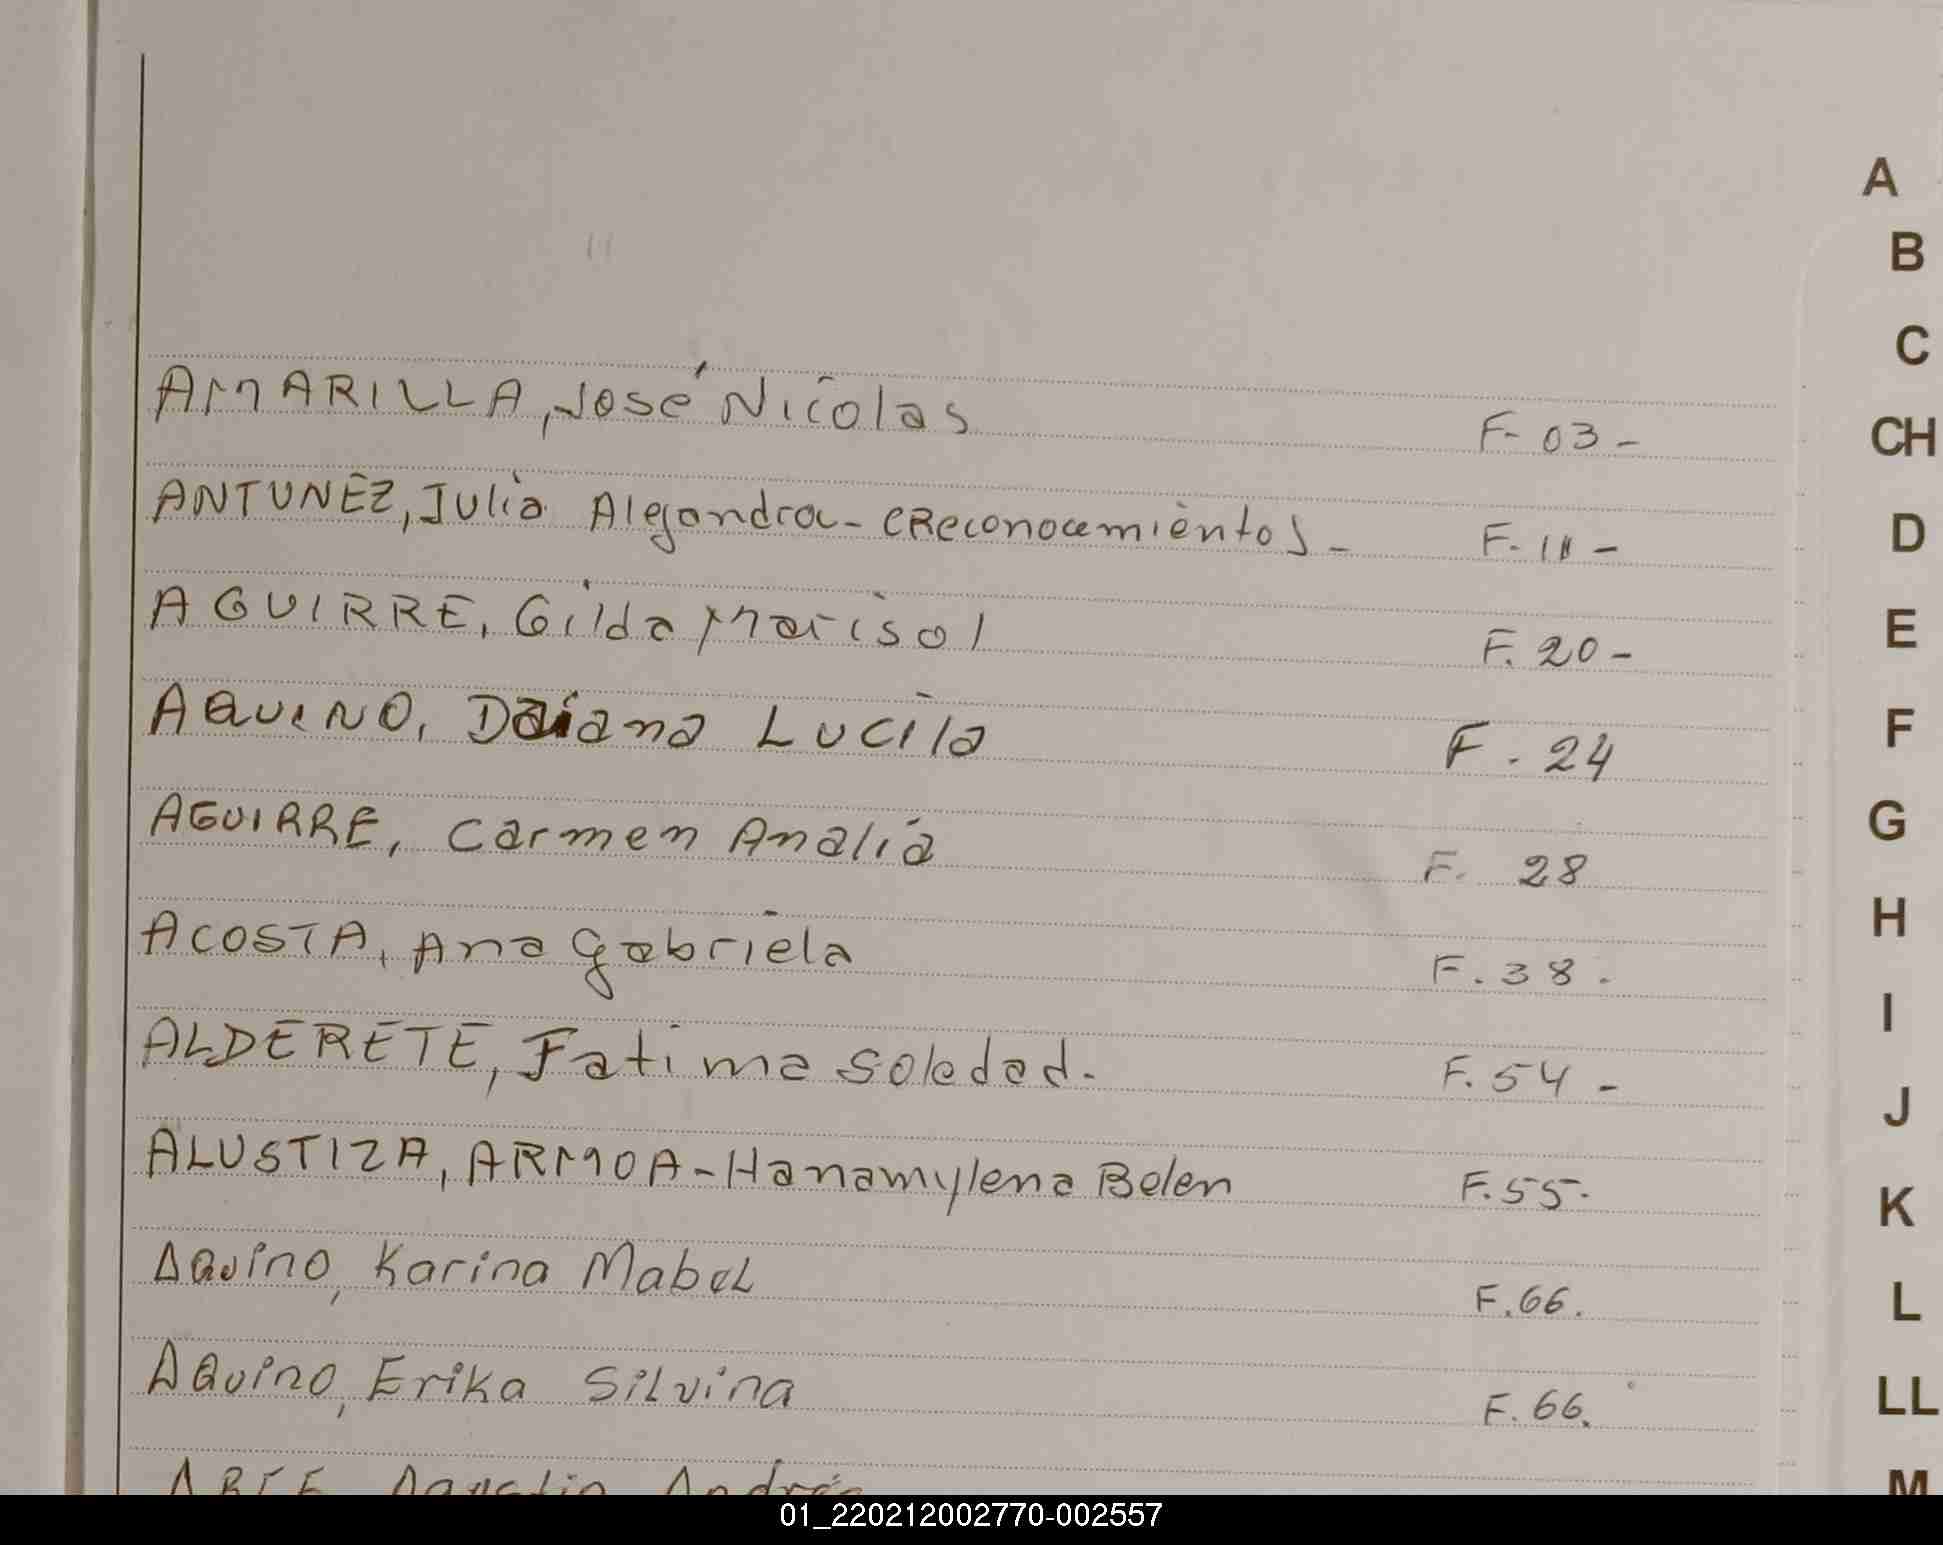 A
B
C
CH
D
E
F
G
H
I
J
K
L
LL
M
AMARILLA, José Nicolas F- 03-
ANTUNEZ, Julia Alejandra- (Reconocimiento)- F. 11 -
AGUIRRE, Gilda Marisol F. 20-
AQUINO, Daiana Lucila F. 24
AGUIRRE, Carmen Analia F. 28
ACOSTA, Ana Gabriela F. 38.
ALDERETE, Fatima Soledad. F. 54 -
ALUSTIZA, ARMOA-Hanamylena Belen F. 55.
Aquino, Karina Mabel F. 66.
Aquino, Erika Silvina F. 66.
Agustin Andrés
01_220212002770-002557